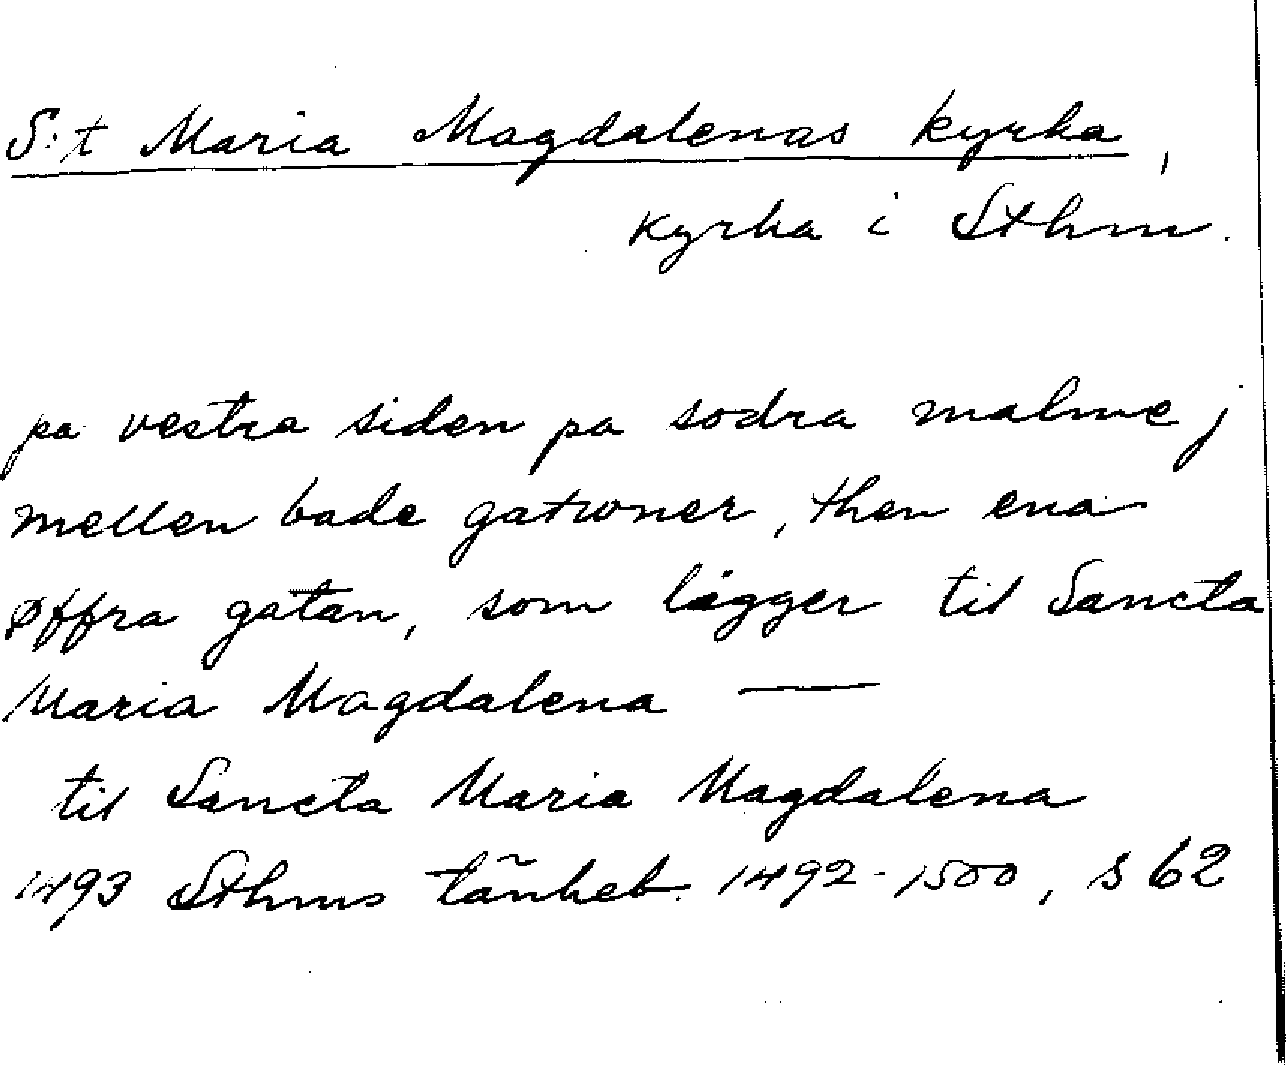 S:t Maria Magdalenas kyrka,
kyrka i Sthm.
pa vestra siden pa sodra malme j
mellen bade gatwner, then ena
øffra gatan, som ligger til Sancta
Maria Magdalena —
til Sancta Maria Magdalena
1493 Sthms tänkeb. 1492-1500, s 62